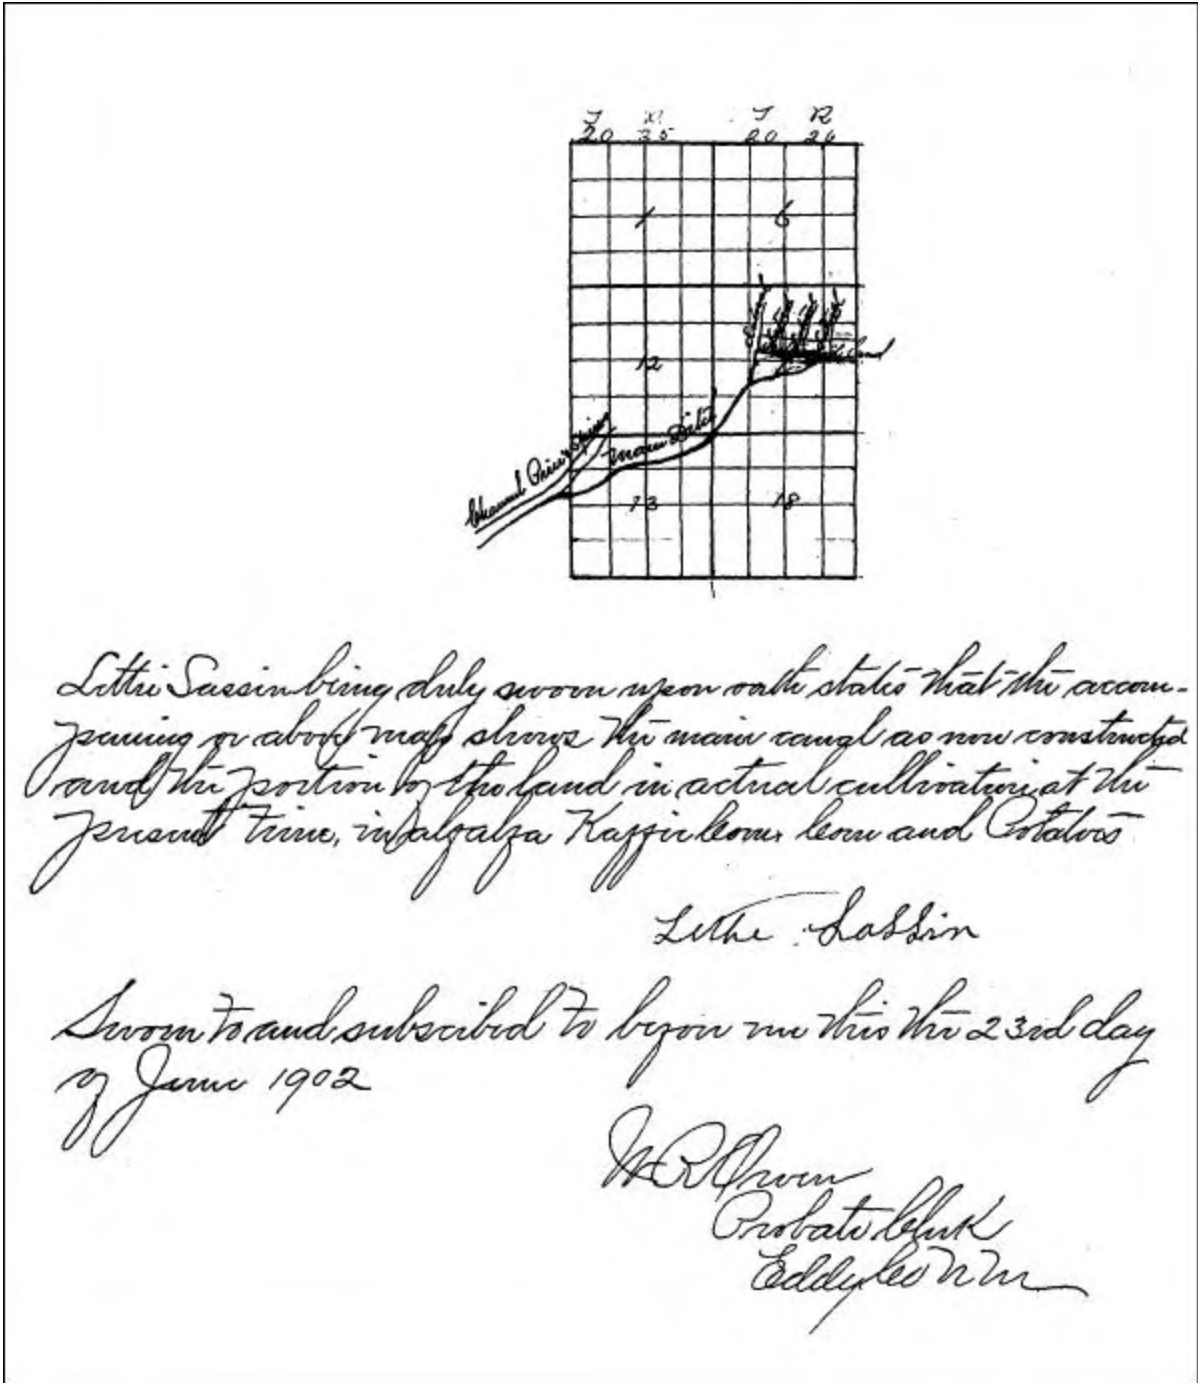 T R T R
20 25 20 26
1 6
12
Main Ditch
Channel
13 18
Littie Sassin being duly sworn upon oath states that the accom-
paning or above map shows the main canal as now constructed
and the portion of the land in actual cultivation at the
present time, in alfalfa Kaffir Corn, Corn and Potatoes
Sassin
Sworn to and subscribed to before me this the 23rd day
of June 1902
W R Owen
Probate Clerk
Eddy Co N M